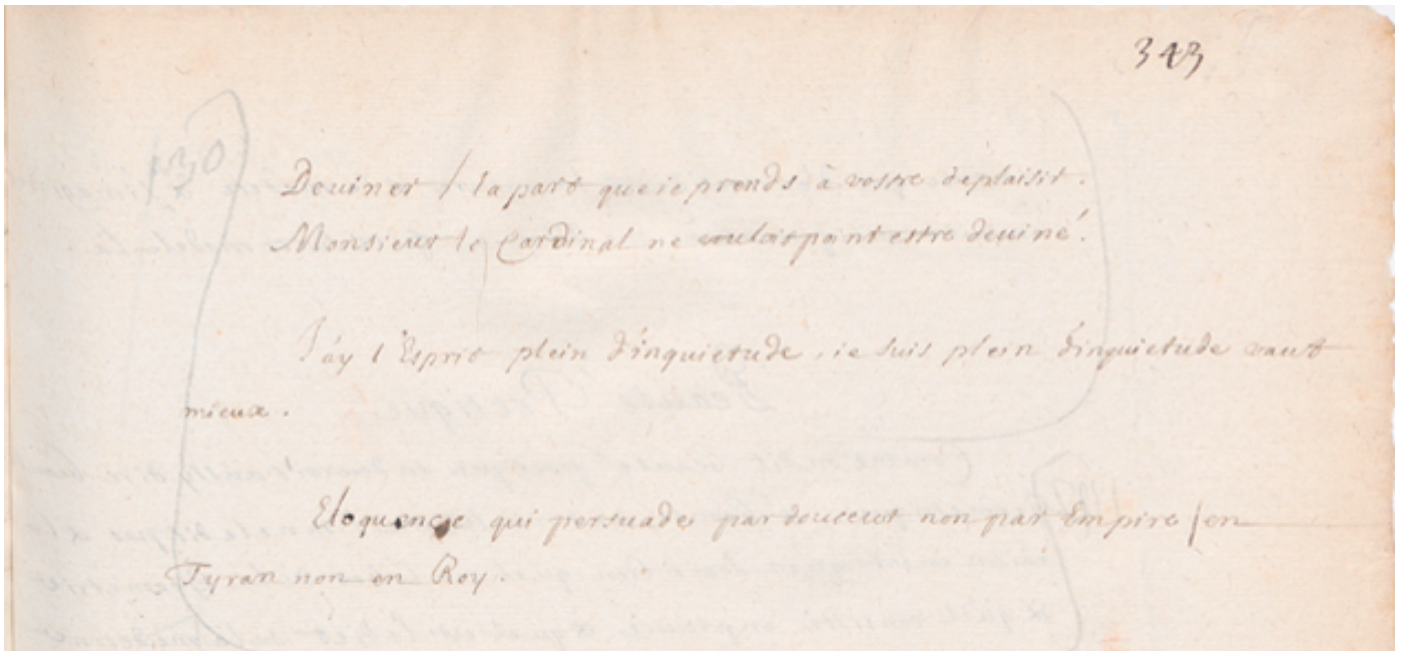 343
Deuiner / la part que ie prends à vostre deplaisir.
Monsieur le Cardinal ne vouloit point estre deuiné.
J'ay l'Esprit plein d'inquietude, ie suis plein d'inquietude vaut
mieux.
Eloquence qui persuade par douceur non par Empire / en
Tyran non en Roy.